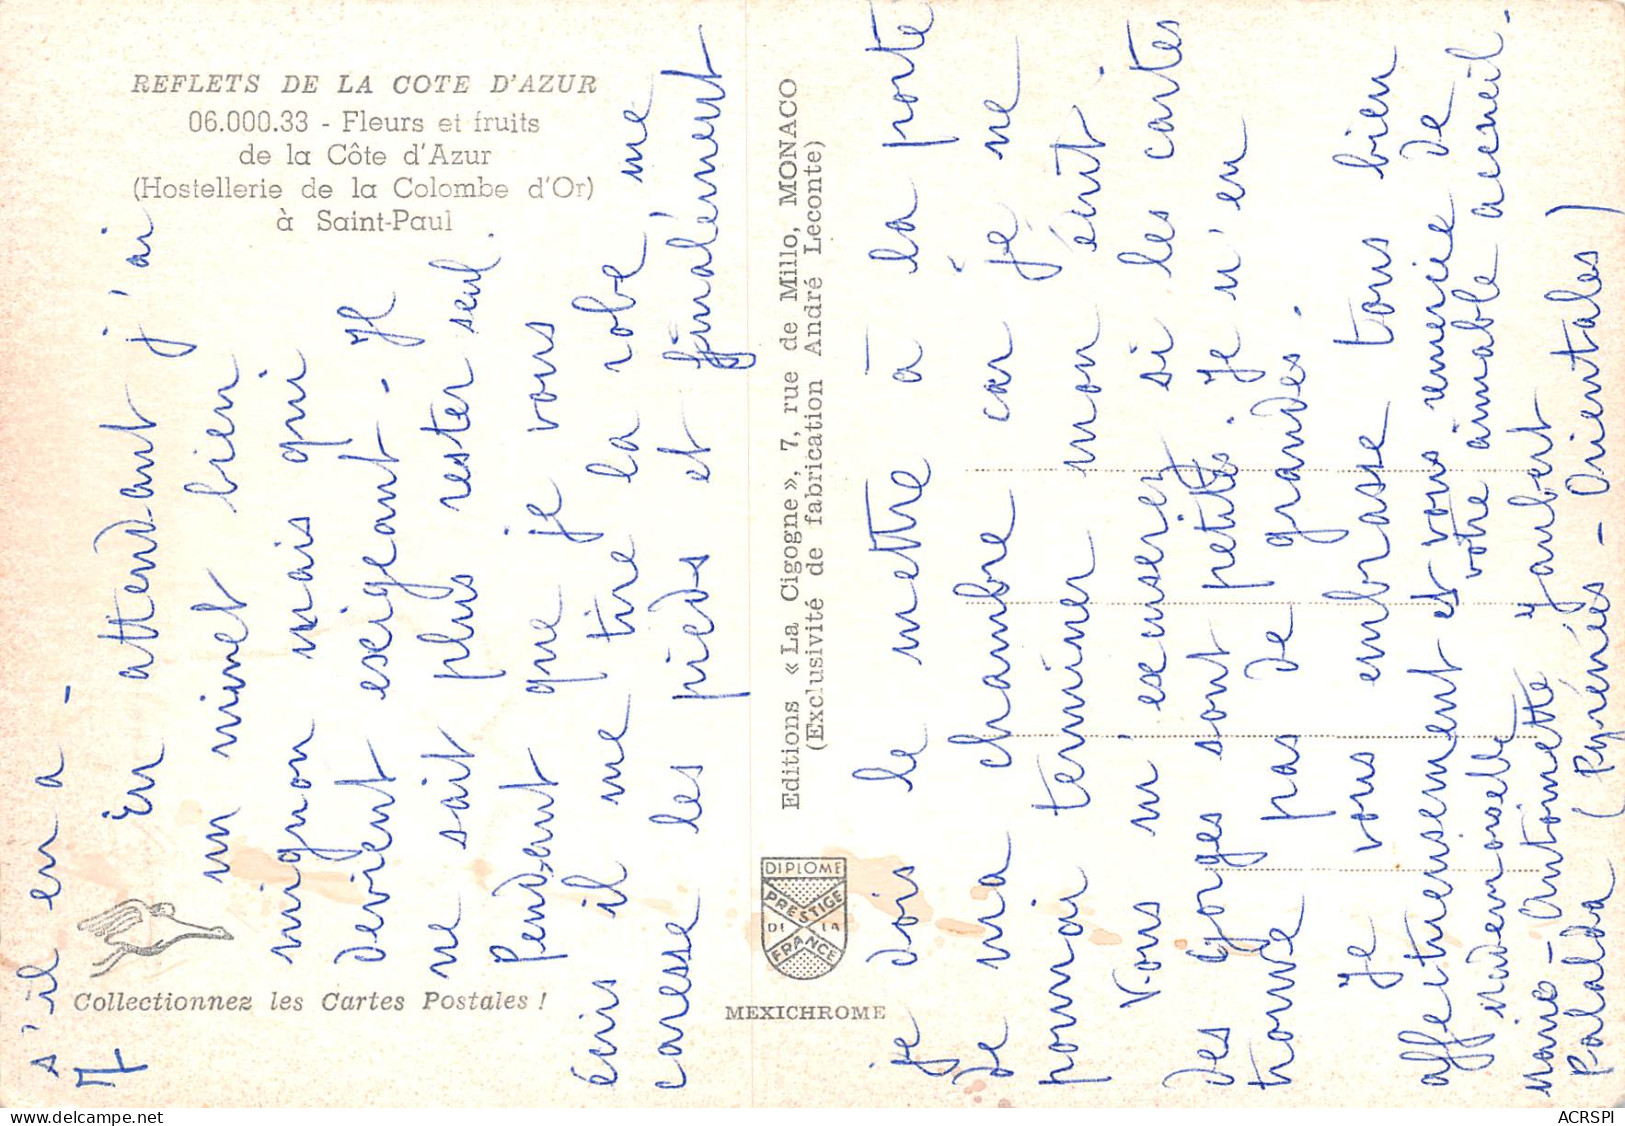 REFLETS DE LA COTE D'AZUR
06.000.33 - Fleurs et fruits
de la Côte d'Azur
(Hostellerie de la Colombe d'Or)
à Saint-Paul
Collectionnez les Cartes Postales !
Editions « La Cigogne », 7, rue de Millo, MONACO
(Exclusivité de fabrication André Leconte)
DIPLOME
PRESTIGE
DE LA
FRANCE
MEXICHROME
s'il en a -
En attendant j'ai
un minet bien
mignon mais qui
devient exigeant - Il
ne sait plus rester seul.
Pendant que je vous
écris il me tire la robe me
caresse les pieds et finalément
je dois le mettre à la porte
de ma chambre car je ne
pourrai terminer mon écrit.
Vous m'excuserez si les cartes
des Gorges sont petites. Je n'en
trouve pas de grandes.
Je vous embrasse tous bien
affectueusement et vous remercie de
votre aimable accueil.
Mademoselle
Marie-Antoinette Jaubert
Palalda (Pyrénées-Orientales)
ACRSPI